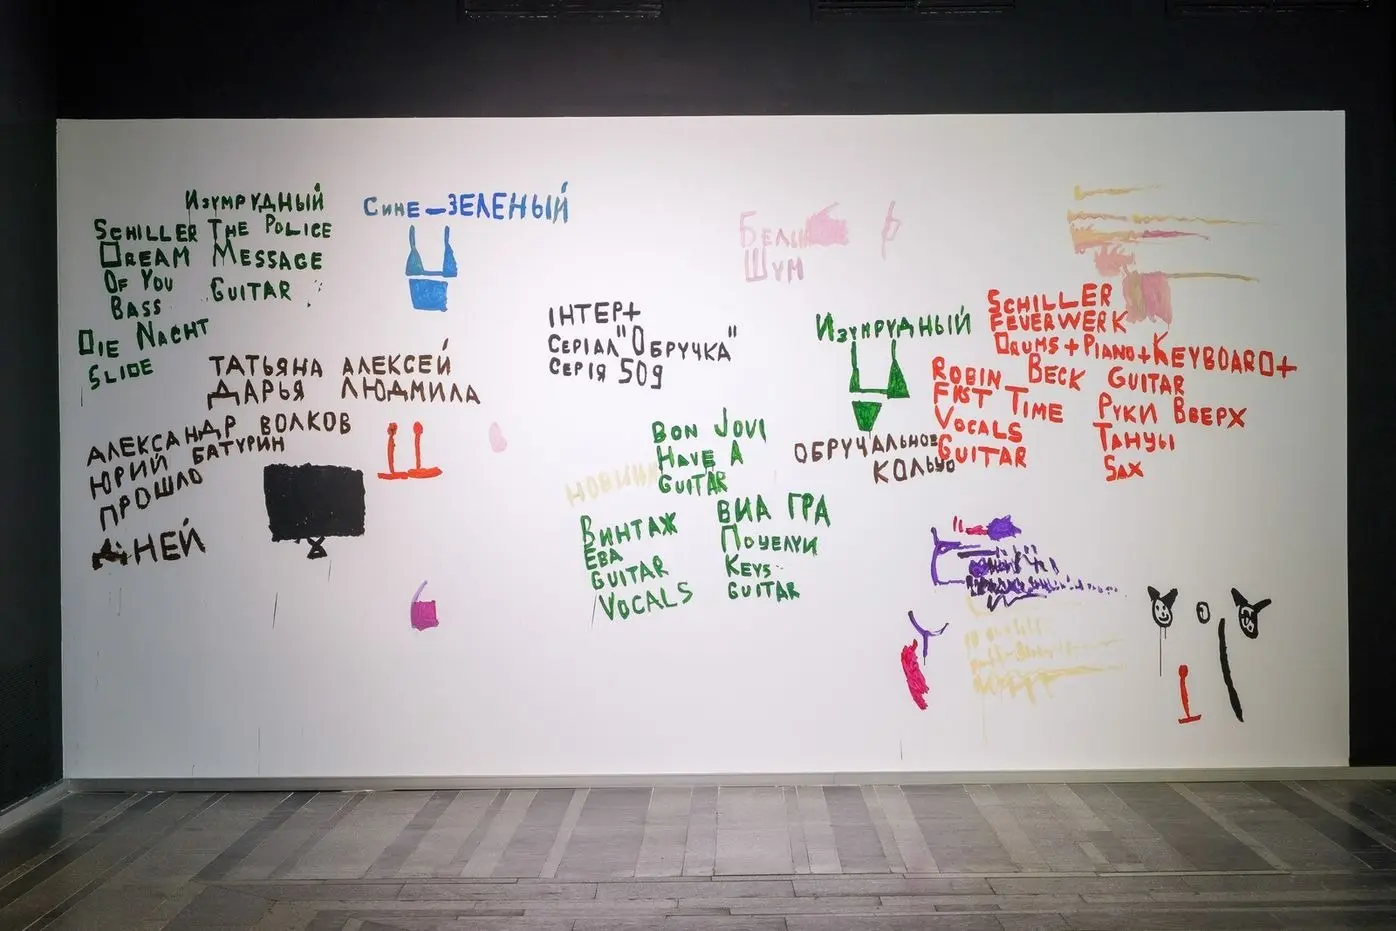 Изумрудный
Schiller The Police
Dream Message
Of You Guitar
Bass
Die Nacht
Slide
Сине-зеленый
ТАТЬЯНА АЛЕКСЕЙ
ДАРЬЯ ЛЮДМИЛА
АЛЕКСАНДР ВОЛКОВ
ЮРИЙ БАТУРИН
ПРОШЛО
ДНЕЙ
ІНТЕР+
СЕРІАЛ "ОБРУЧКА"
СЕРІЯ 509
Шум
Bon Jovi
Have A
Guitar
Винтаж
Ева
Guitar
Vocals
ВИА ГРА
Поцелуи
Keys
Guitar
Изумрудный
ОБРУЧАЛЬНОЕ
КОЛЬЦО
Schiller
Feuerwerk
Drums+Piano+Keyboard+
Guitar
Robin Beck
First Time
Vocals
Guitar
Руки Вверх
Танцы
Sax